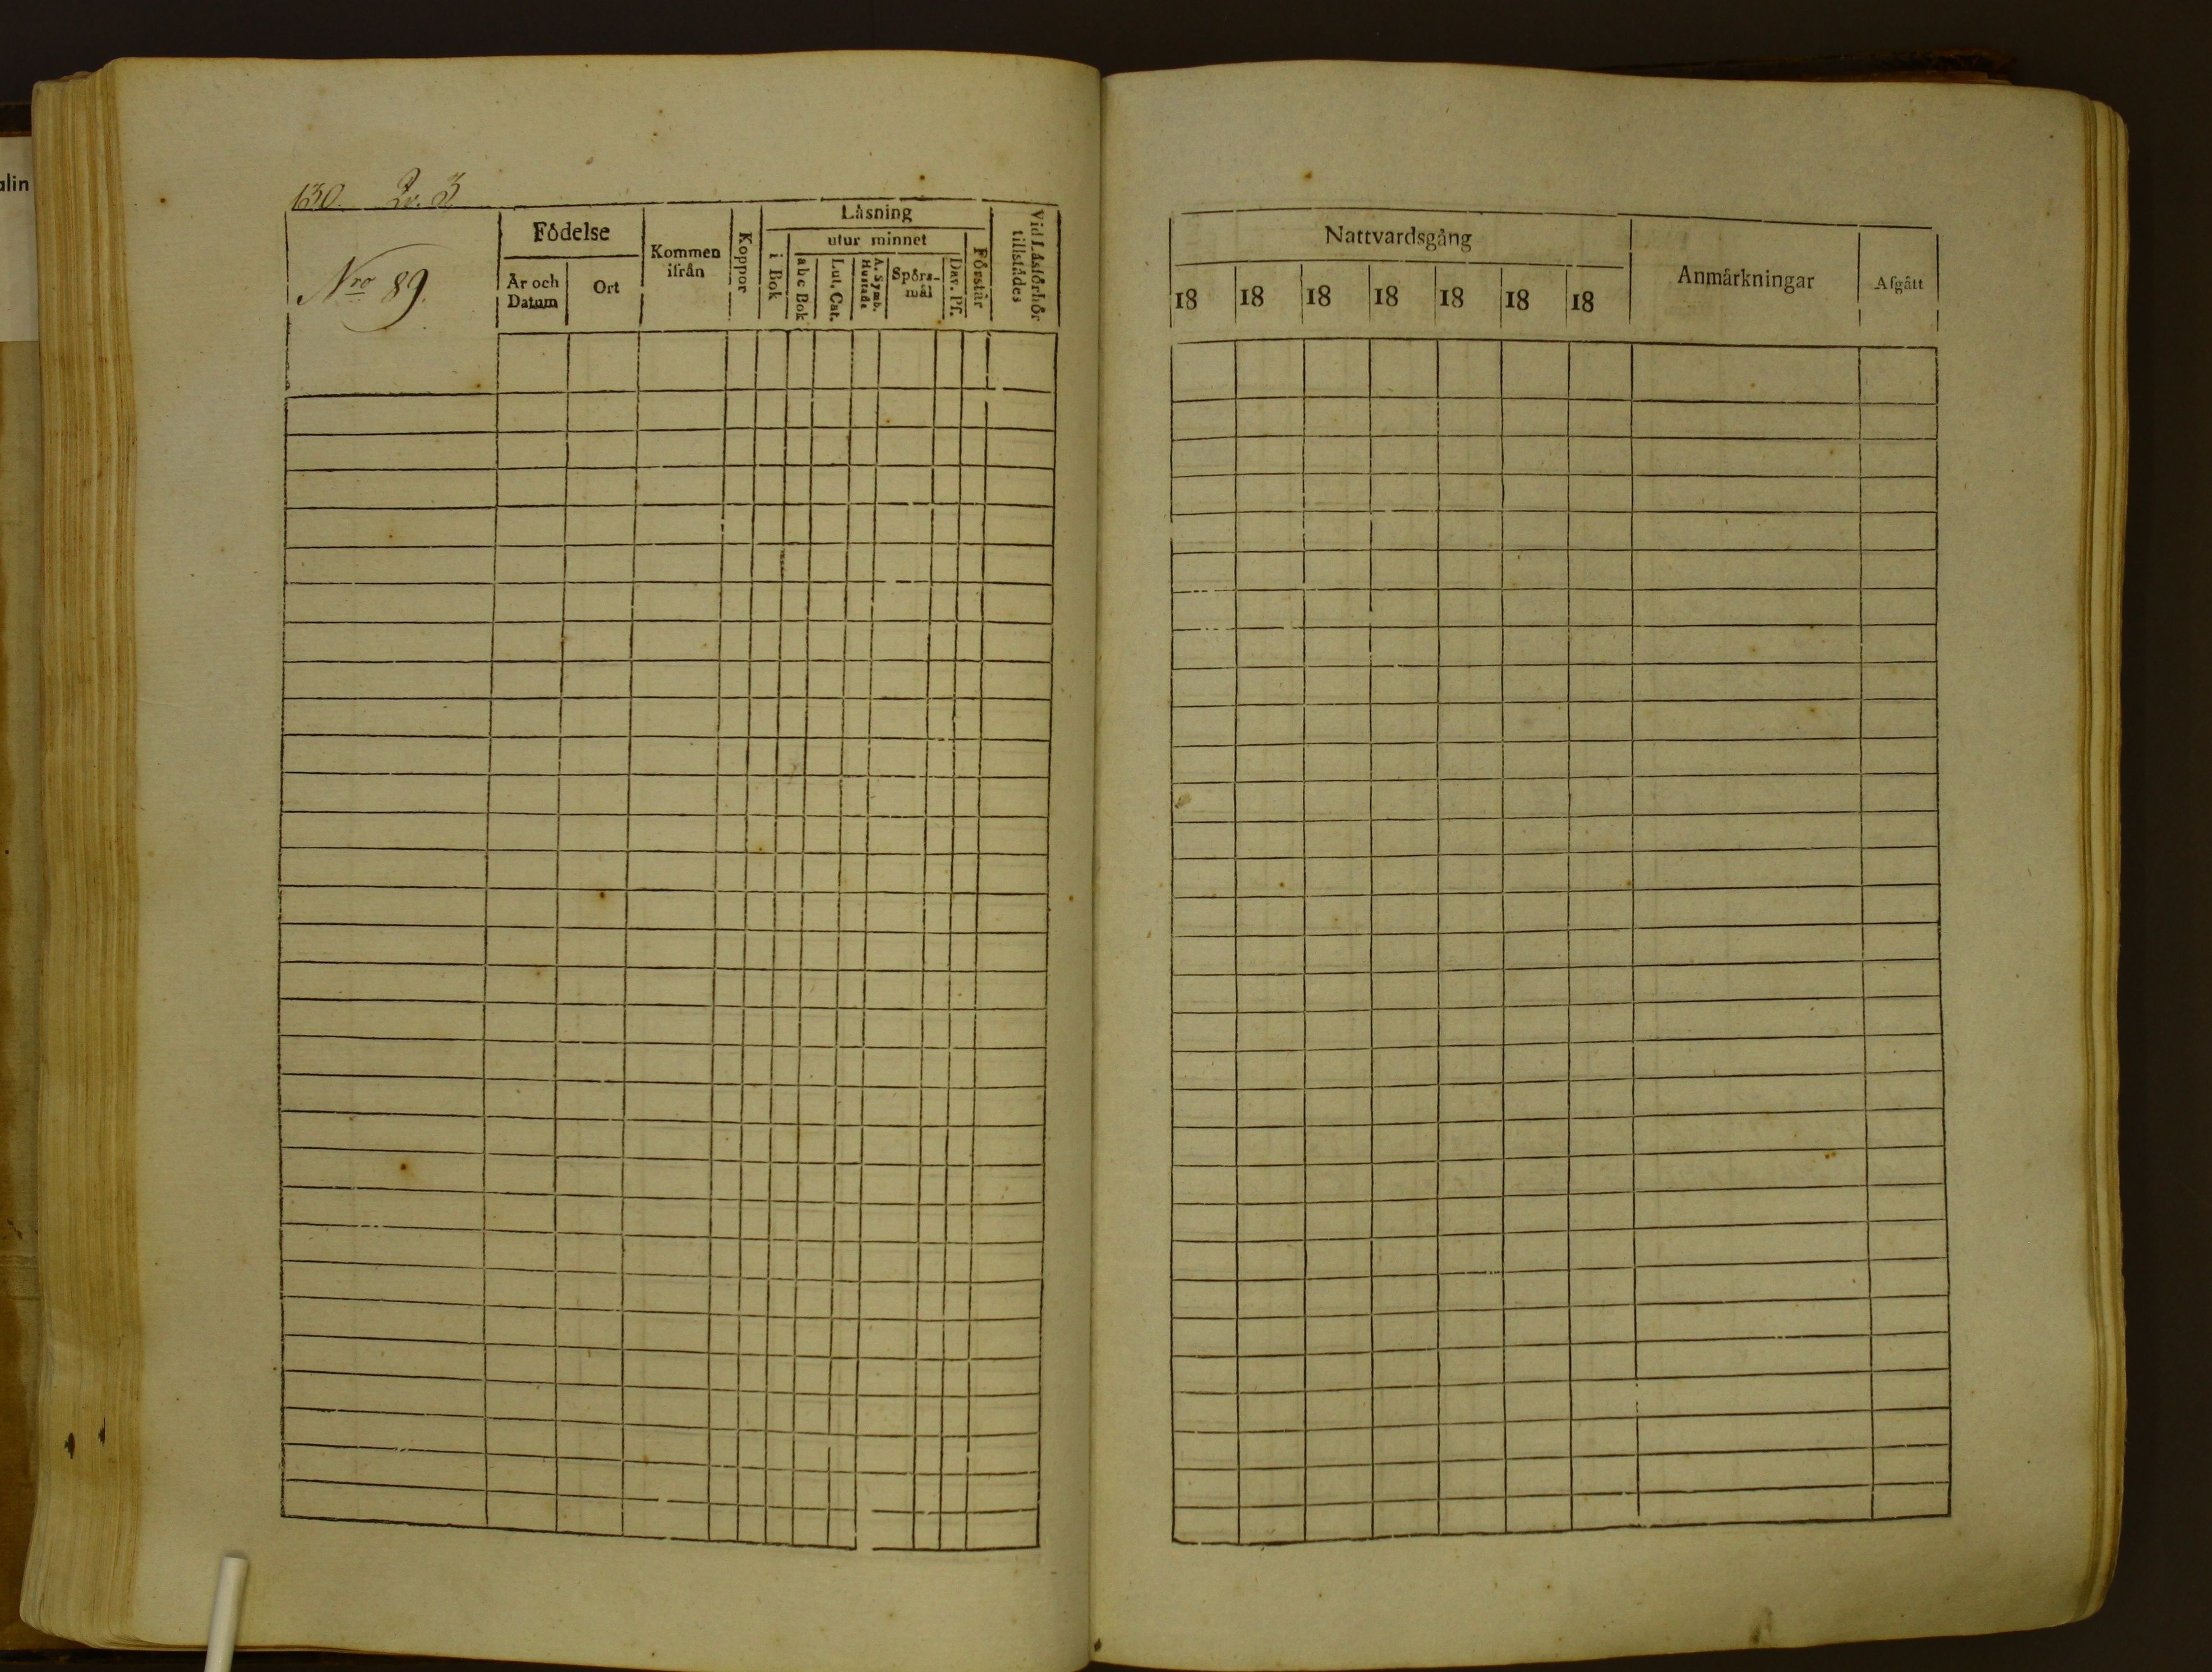 alin
130. Qv. 3
Nro 89.
Födelse
År och Datum
Ort
Kommen ifrån
Koppor
Läsning
i Bok
utur minnet
a b c Bok
Lut. Cat.
A. Symb. Hustafla
Spörs-
mål
Dav. Ps.
Förstår
Vid Läsförhör tillstädes
Nattvardsgång
18 18 18 18 18 18 18
Anmärkningar
Afgått